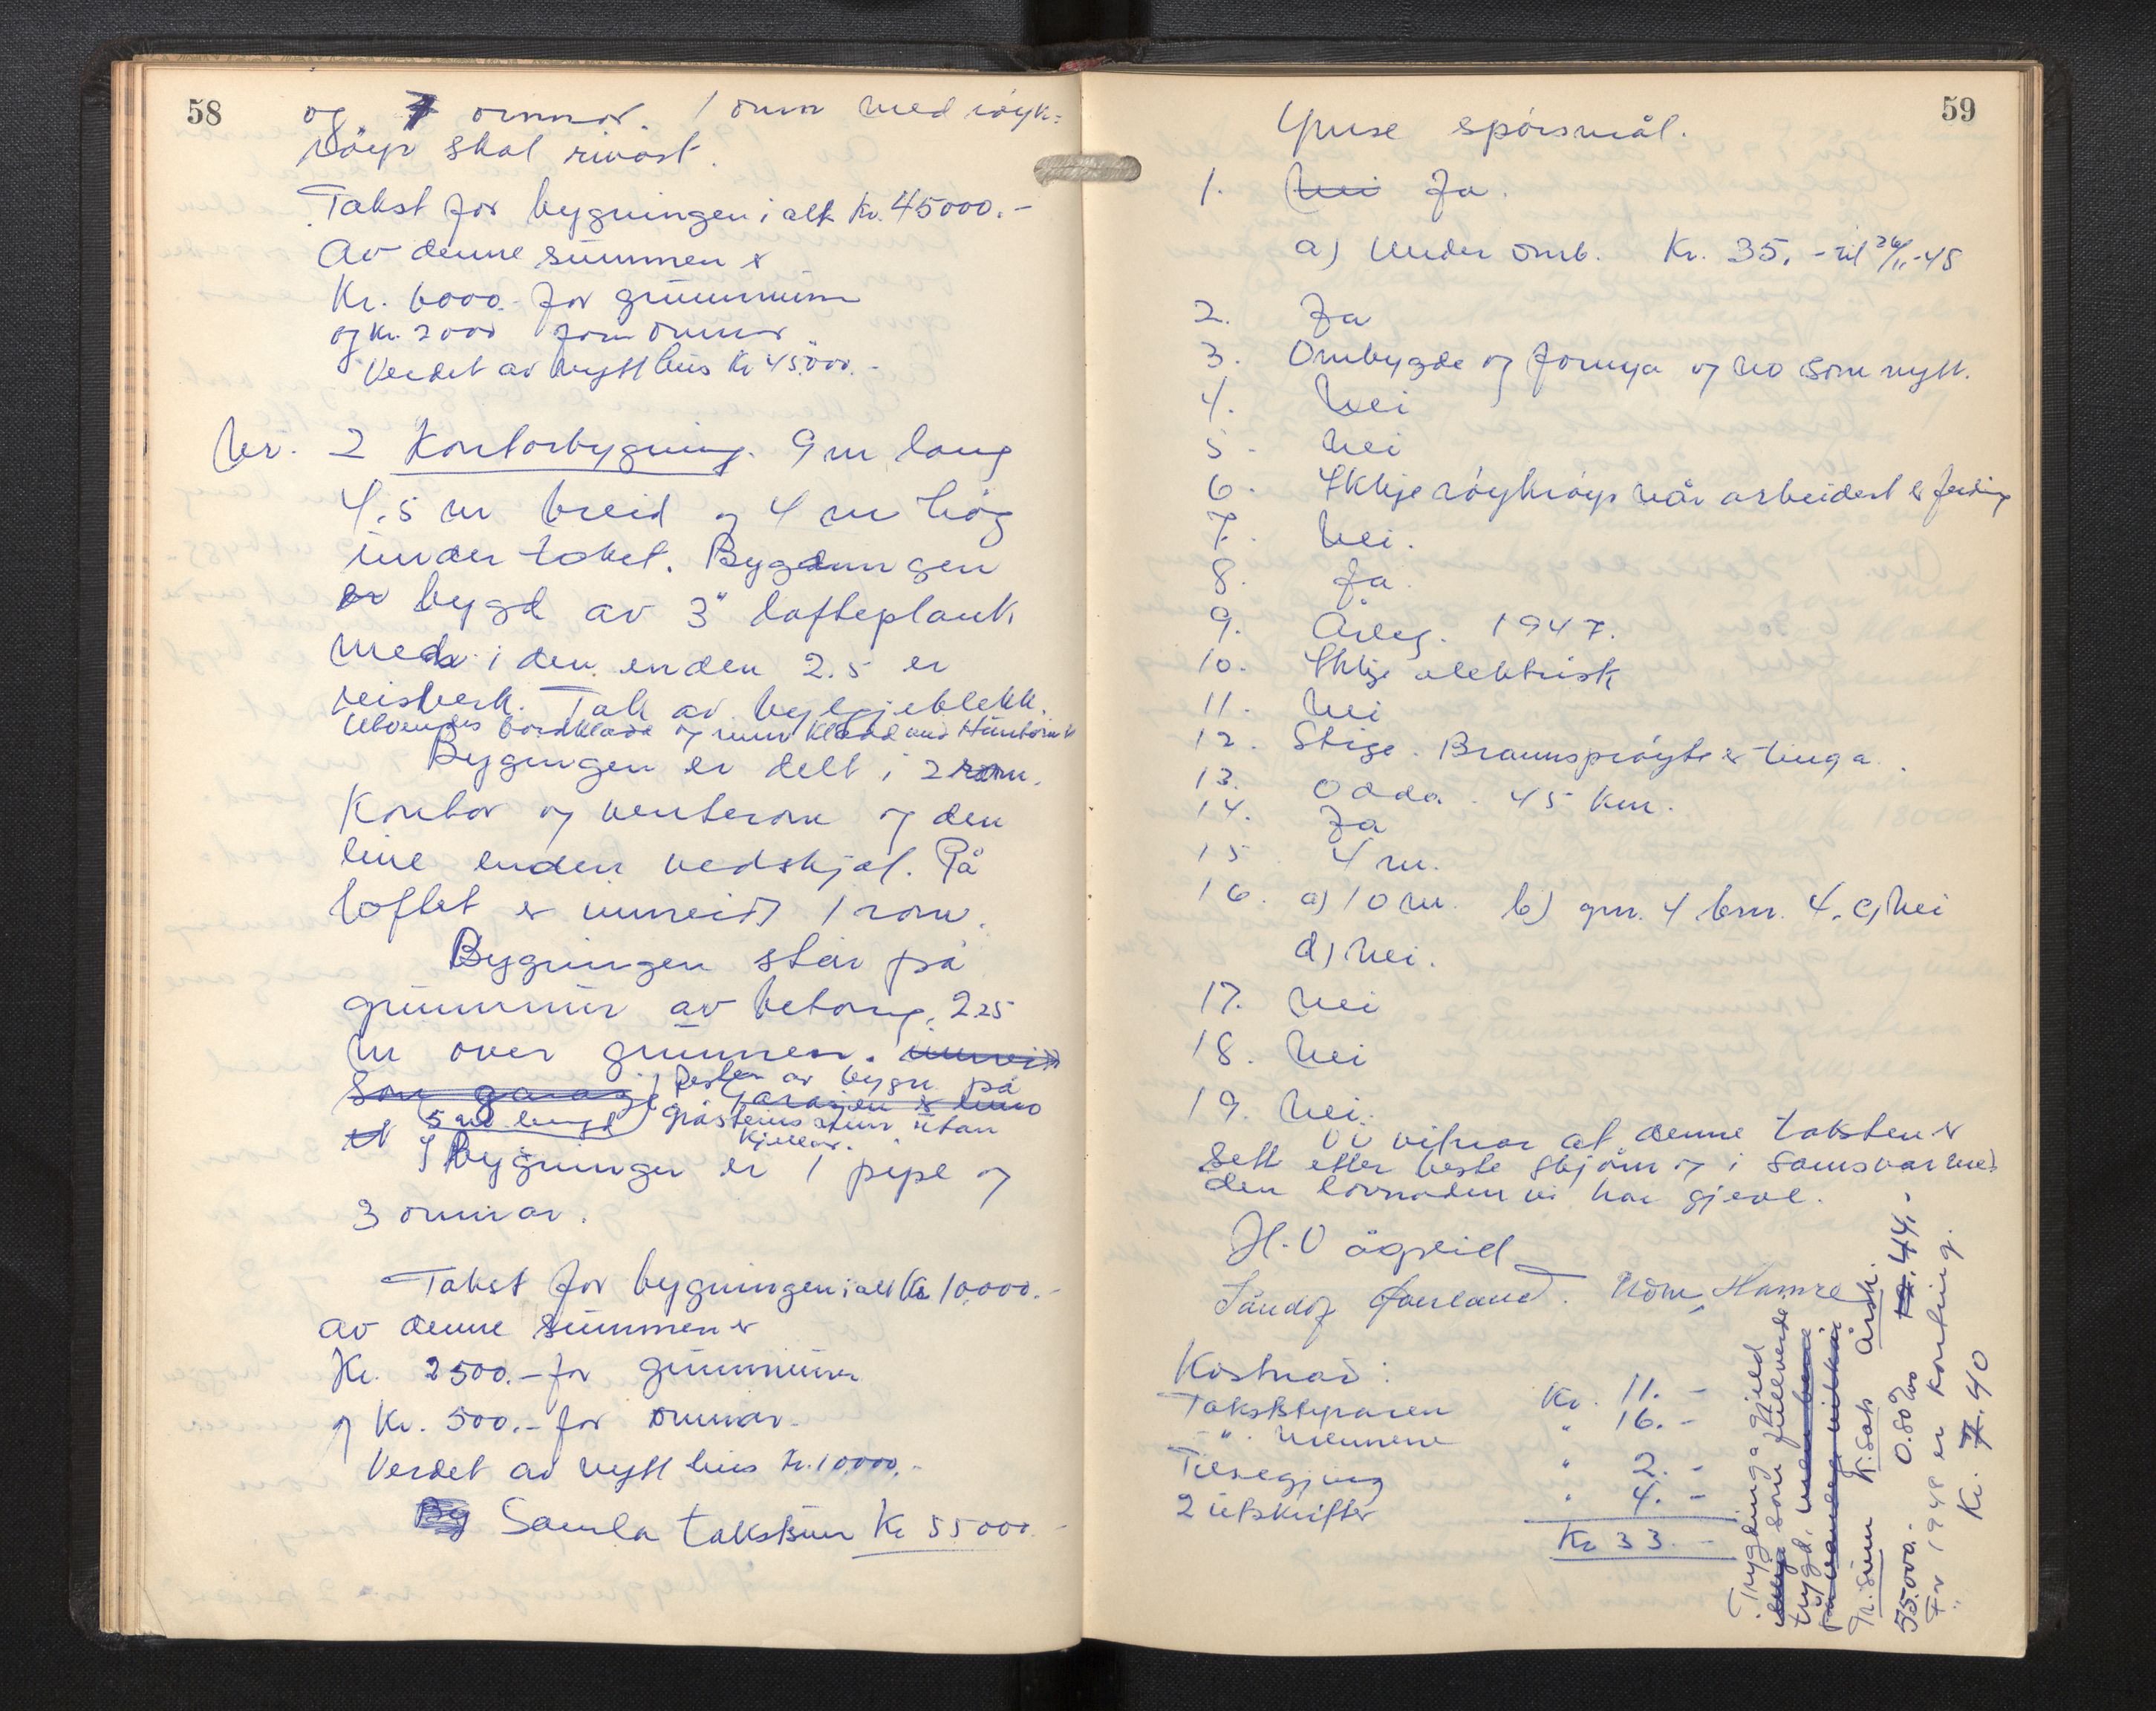 58
og 7 omnar. 1 omn med röyk=
röyr skal rivast.
Takst for bygningen i alt kr. 45000.-
Av denne summen er
Kr. 6000.- for grunnmur
og kr. 2000 for omnar
Verdet av nytt hus kr 45.000.-
Nr. 2 Kontorbygning. 9 m lang
4.5 m breid og 4 m høg
under taket. Bygdningen
er bygd av 3" lafteplank
med i den enden 2.5 er
reisverk. Tak av bylgjeblekk.
Utvendes bordkledd og innv. kledd med Huntonit
Bygingen er delt i 2 rom.
Kontor og venterom og den
eine enden vedskjol. På
loftet er innreidd 1 rom.
Bygningen står på
grunnmur av betong, 2.25
m over grunnen. innreidd
som garasje Resten av bygn. på
5 m lengd Garasjen er
gråsteins utan
kjellar.
I bygningen er 1 pipe og
3 omnar.
Takst for bygningen i alt Kr 10.000.-
av denne summen er
Kr. 2500.- for grunnmuren
og Kr. 500.- for omnar.
Verdet av nytt hus kr. 10.000.-
By Samla takstsum Kr 55000.-
59
Ymse spörsmål.
1. Nei Ja.
a) Under omb. Kr. 35.- til 26/11-48
2. Ja
3. Ombygde og fornya og no som nytt.
4. Nei
5. Nei
6. Ikkje röykröyr når arbeidet er ferdig
7. Nei.
8. Ja.
9. Årleg. 1947.
10. Ikkje elektrisk
11. Nei
12. Stige. Brannspröyte er tinga.
13. Odda. 45 km.
14. Ja
15. 4 m.
16. a) 10 m. b) gm. 4 bm. 4. c) Nei
d) Nei.
17. Nei
18. Nei
19. Nei.
Vi vitnar at denne taksten er
sett etter beste skjön og i samsvar med
den lovnaden vi har gjeve.
H. O Ågreid
Sandof Jorland. Nom. Hamre
Kostnad:
Takststyraren Kr. 11.-
-"- mennene " 16.-
Tilsegjing " 2.-
2 utskrifter " 4.-
Kr 33.-
Trygdinga gjeld
som fullverde
trygd,
Tr.sum K.sats årsk.
55.000.- 0.80‰ 44.-
For 1948 er konting.
" Kr. 7.40